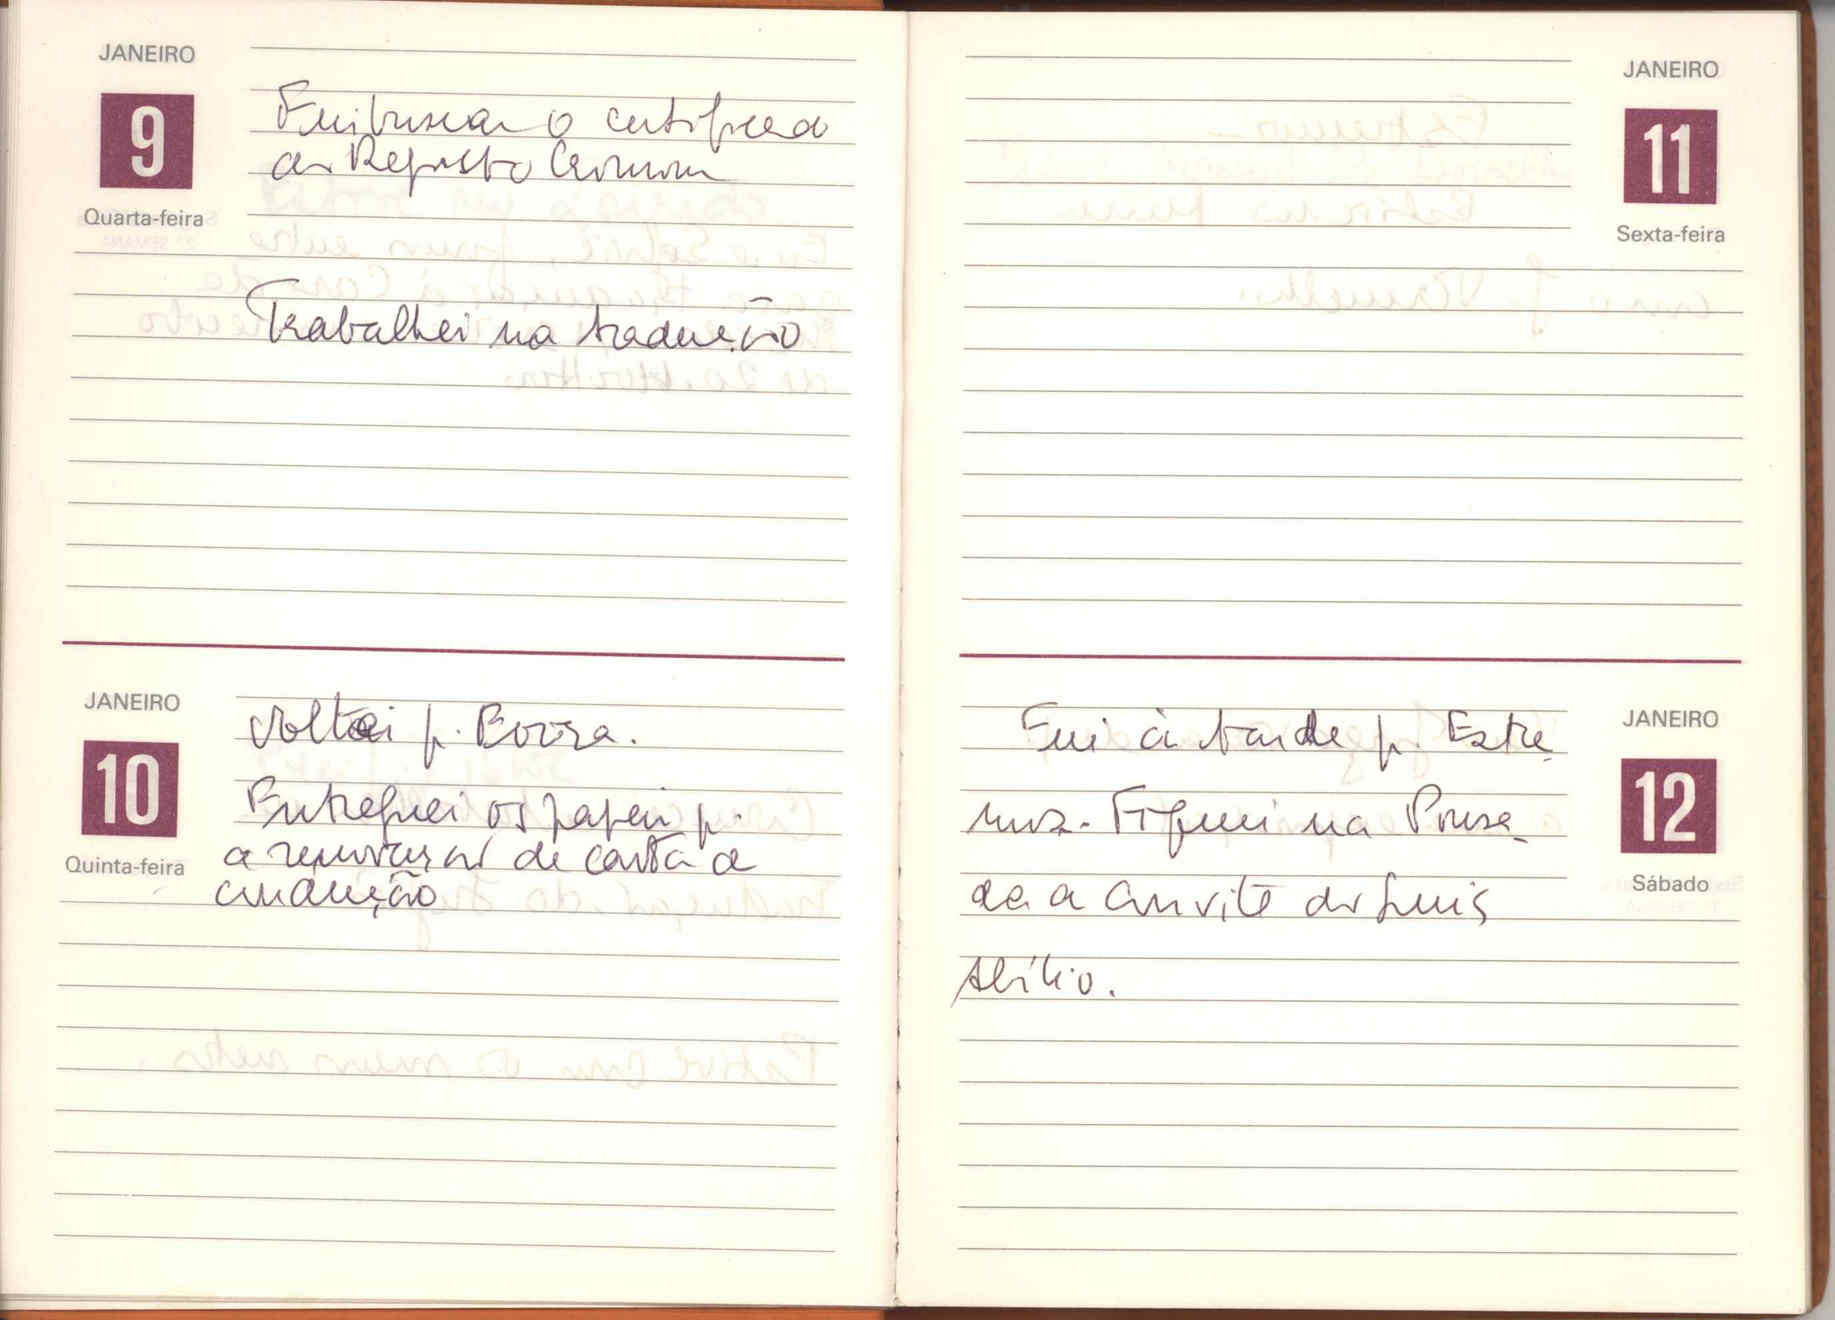 JANEIRO
9
Quarta-feira
Fui buscar o certificado
do Registo Criminal
Trabalhei na tradução
JANEIRO
10
Quinta-feira
Voltei p. Borba.
Entreguei os papeis p.
a renovação de carta de
condução
JANEIRO
11
Sexta-feira
JANEIRO
12
Sábado
Fui à tarde p. Estre
moz. Fiquei na Pousa
da a convite do Luis
Abílio.